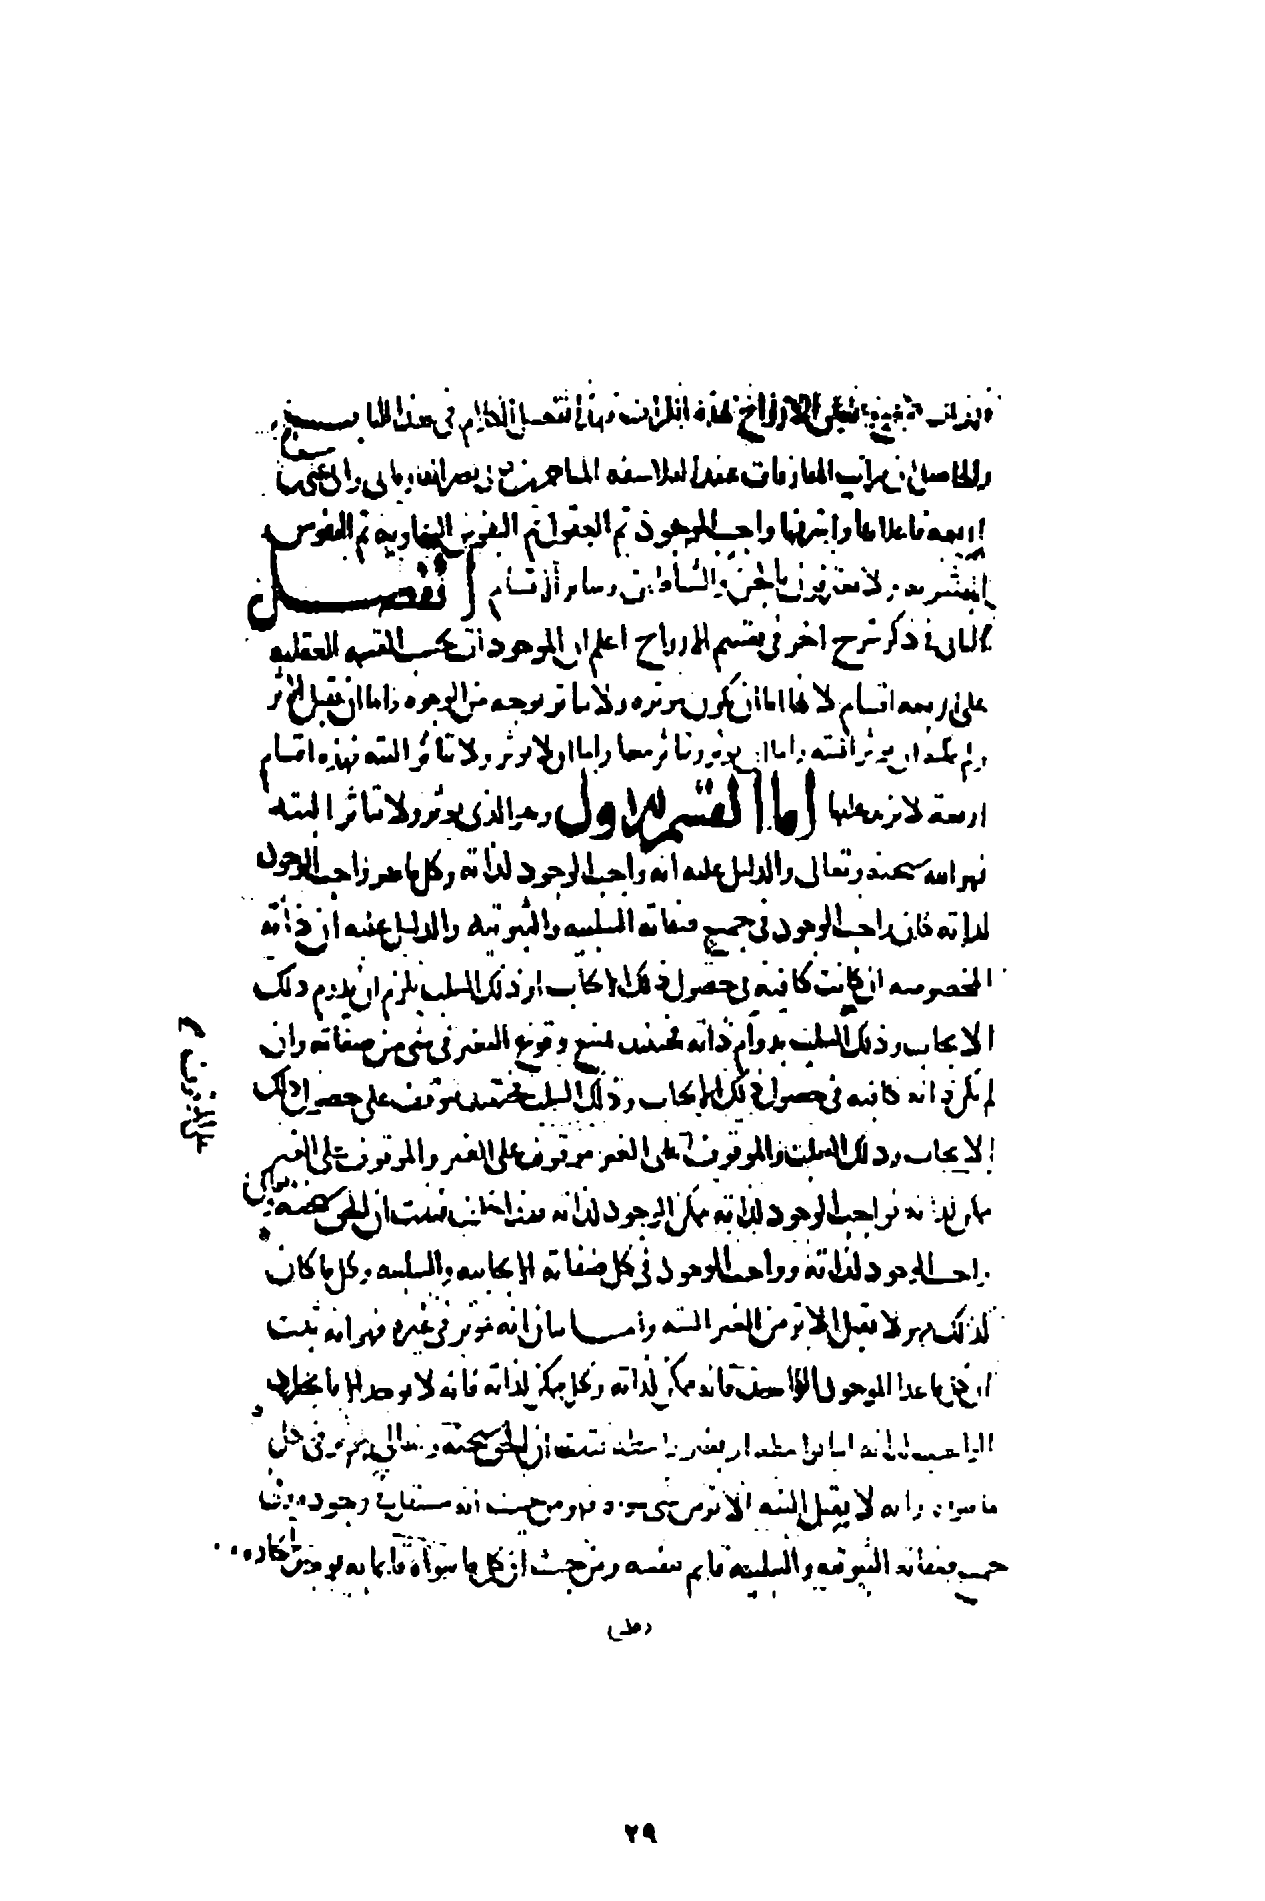 والحاصل ان مراتب المفارقات عند الفلاسفة
اربعة فاعلاها واشرفها واجب الوجود ثم العقول ثم النفوس السماوية ثم النفوس
البشرية ولا يعترفون بالجن والشياطين وسائر الاقسام الفصل
الثانى فى ذكر شرح اخر فى تقسيم الارواح اعلم ان الموجودات بحسب القسمة العقلية
على اربعة اقسام لانها اما ان تكون موثره ولا تتاثر بوجه من الوجوه واما ان تقبل الاثر
ولم يمكنه ان يوثر البتة واما ان يوثر ويتاثر معا واما ان لا يوثر ولا يتاثر البتة فهذه اقسام
اربعة لا مزيد عليها اما القسم الاول وهو الذى يوثر ولا يتاثر البتة
فهو الله سبحنه وتعالى والدليل عليه انه واجب الوجود لذاته وكل ما هو واجب الوجود
لذاته فانه واجب الوجود فى جميع صفاته السلبية والثبوتية والدليل عليه ان ذاته
المخصوصة ان كانت كافية فى حصول ذلك الايجاب او ذلك السلب يلزم ان يدوم ذلك
الايجاب وذلك السلب بدوام ذاته فحينئذ يمتنع وقوع التغير فى شى من صفاته وان
لم تكن ذاته كافية فى حصول ذلك الايجاب وذلك السلب فحينئذ يتوقف على حصول ذلك
الايجاب وذلك السلب والموقوف على الغير موقوف على الغير والموقوف على الغير
ممكن لذاته فواجب الوجود لذاته ممكن الوجود لذاته هذا خلف فثبت ان الحق سبحنه
واجب الوجود لذاته وواجب الوجود فى كل صفاته الايجابية والسلبية وكل ما كان
كذلك فهو لا يقبل الاثر من الغير البتة واما بيان انه موثر فى غيره فهو انه ثبت
ان كل ما عدا الموجود الواحد فانه ممكن لذاته وكل ممكن لذاته فانه لا يوجد الا بايجاد
الواجب لذاته اما بواسطة او بغير واسطة فثبت ان الحق سبحنه وتعالى يوثر فى كل
ما سواه وانه لا يقبل البتة الاثر من شى سواه فهو من حيث انه مستقل فى وجوده وفى
جميع صفاته الثبوتية والسلبية قايم بنفسه ومن حيث ان كل ما سواه فانما يوجد بايجاده
٢٩